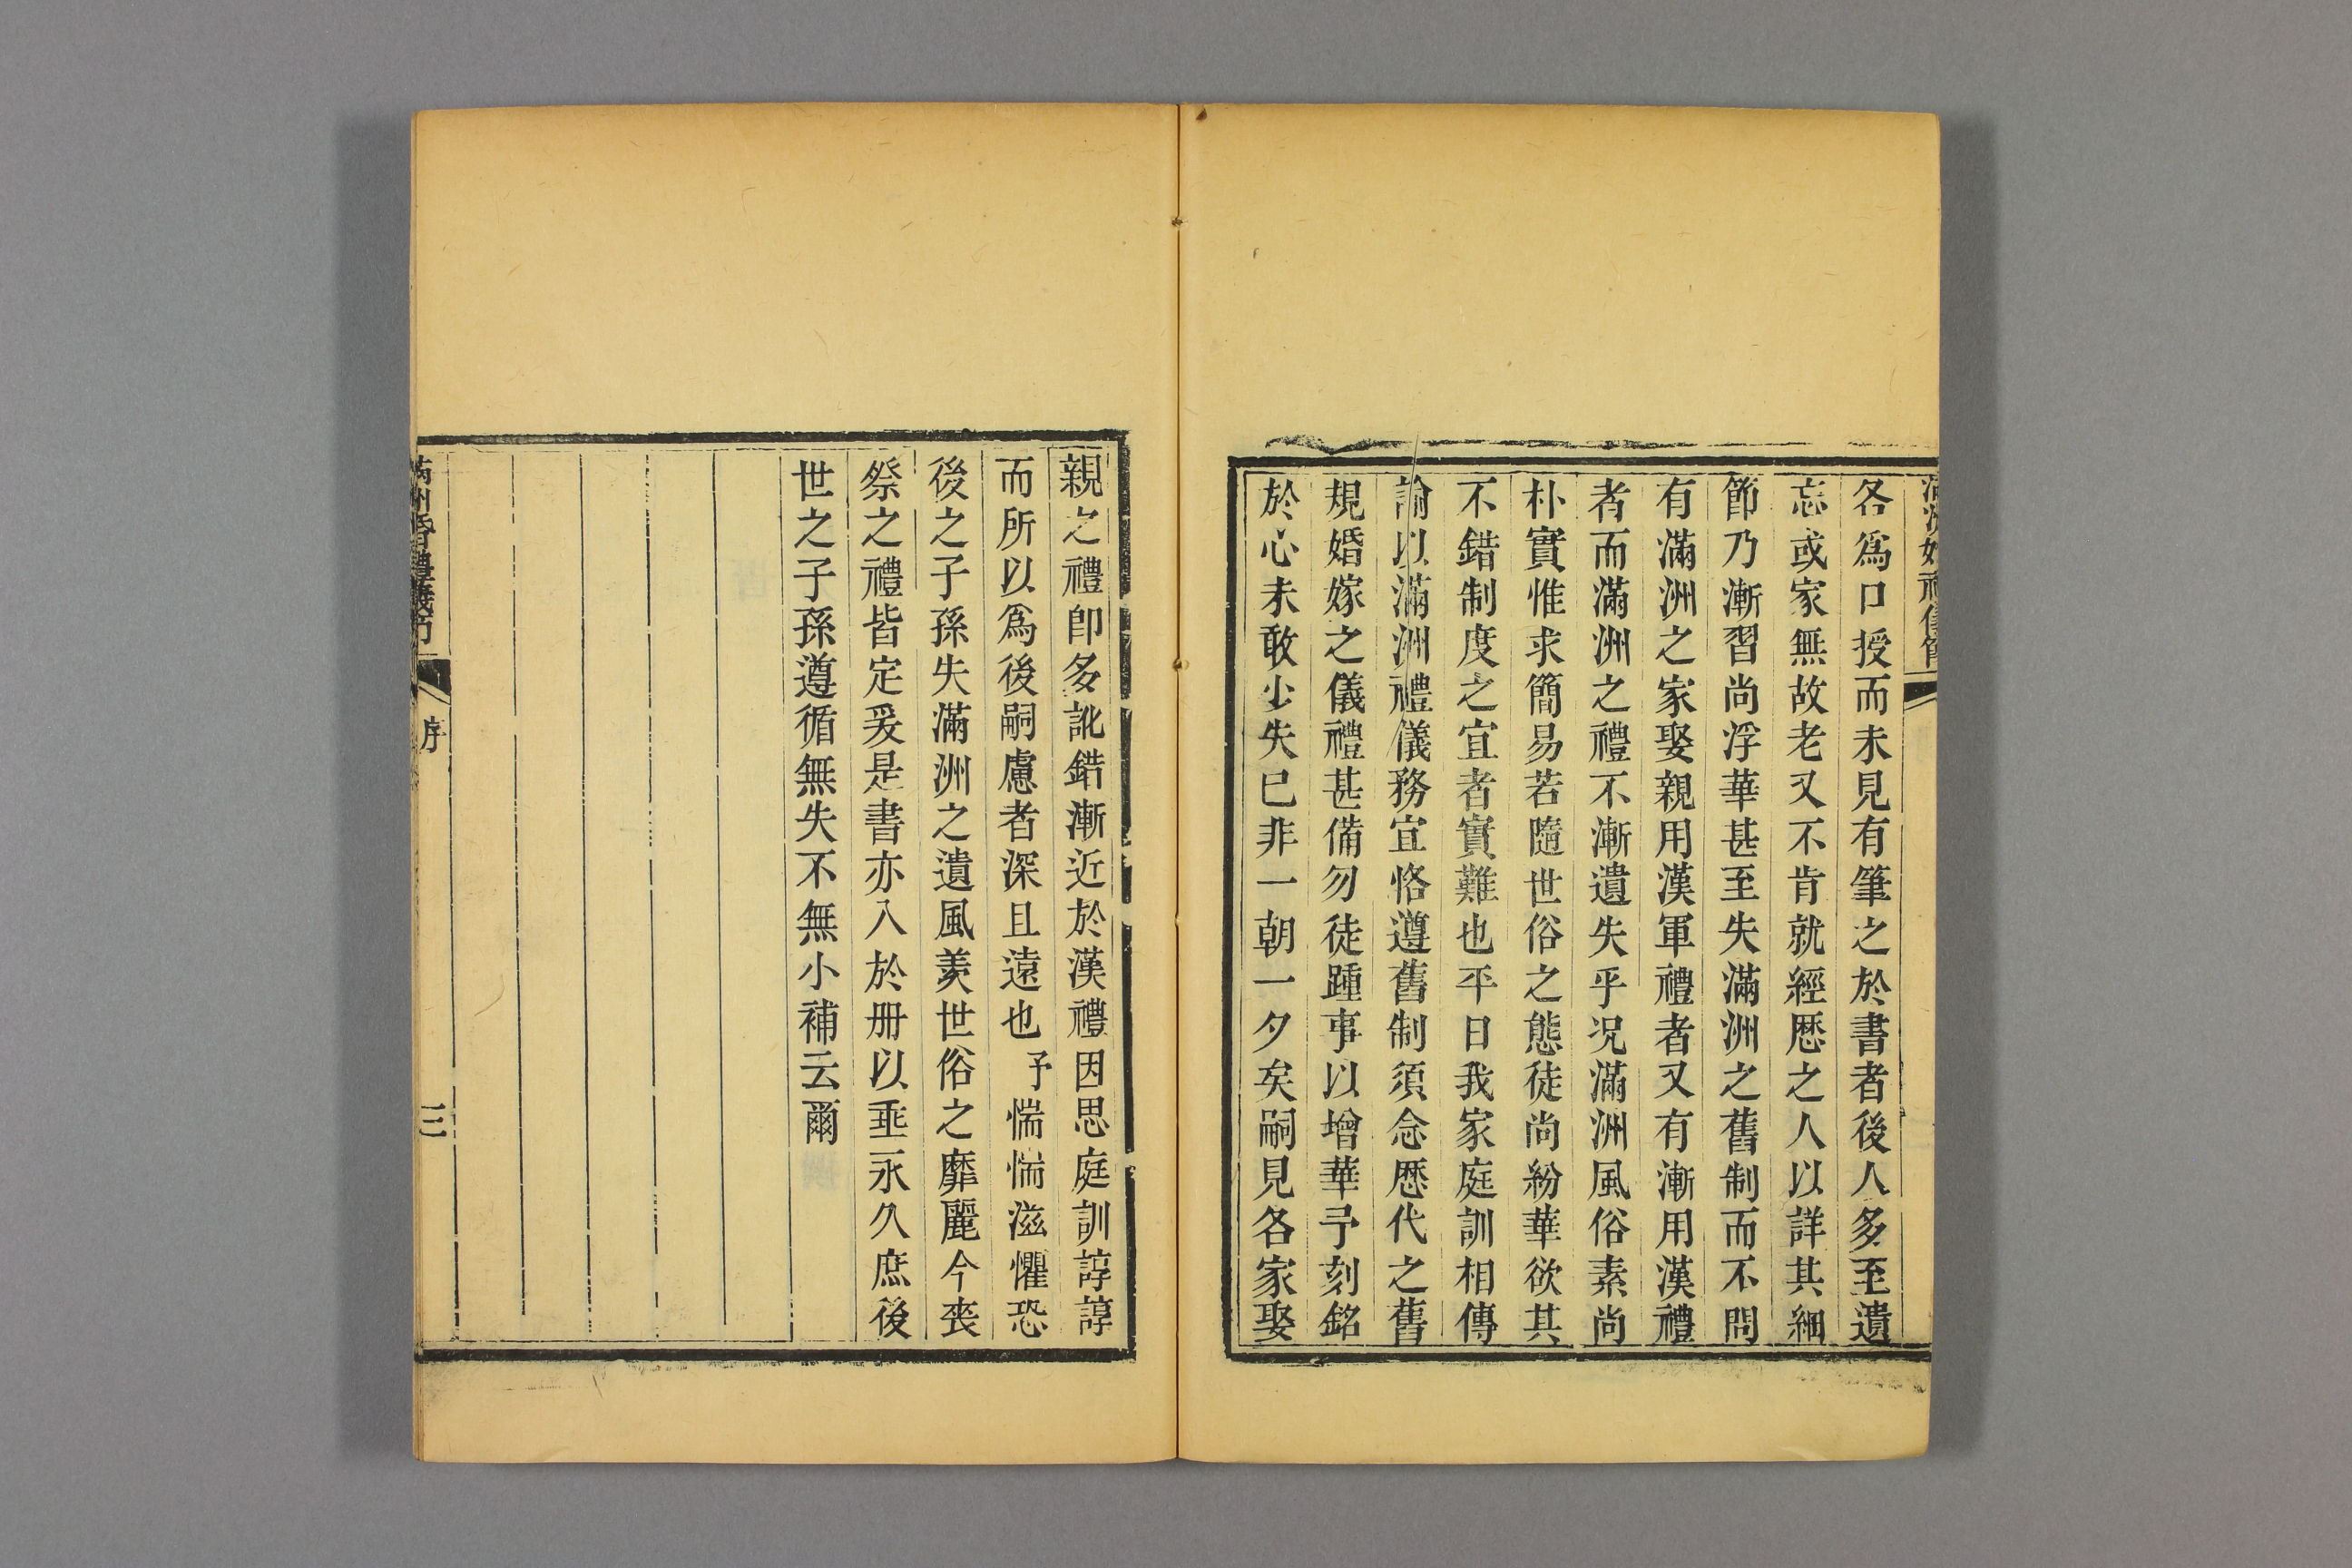 各爲口授而未見有筆之於書者後人多至遺
忘或家無故老又不肯就經歷之人以詳其細
節乃漸習尚浮華甚至失滿洲之舊制而不問
有滿洲之家娶親用漢軍禮者又有漸用漢禮
者而滿洲之禮不漸遺失乎况滿洲風俗素尚
朴實惟求簡易若隨世俗之態徒尚紛華欲其
不錯制度之宜者實難也平日我家庭訓相傳
諭以滿洲禮儀務宜恪遵舊制須念歷代之舊
規婚嫁之儀禮甚備勿徒踵事以增華予刻銘
於心未敢少失已非一朝一夕矣嗣見各家娶
親之禮卽多訛錯漸近於漢禮因思庭訓諄諄
而所以爲後嗣慮者深且遠也予惴惴滋懼恐
後之子孫失滿洲之遺風羨世俗之靡麗今喪
祭之禮皆定爰是書亦入於册以垂永久庶後
世之子孫遵循無失不無小補云爾
滿洲婚禮儀節
序
三